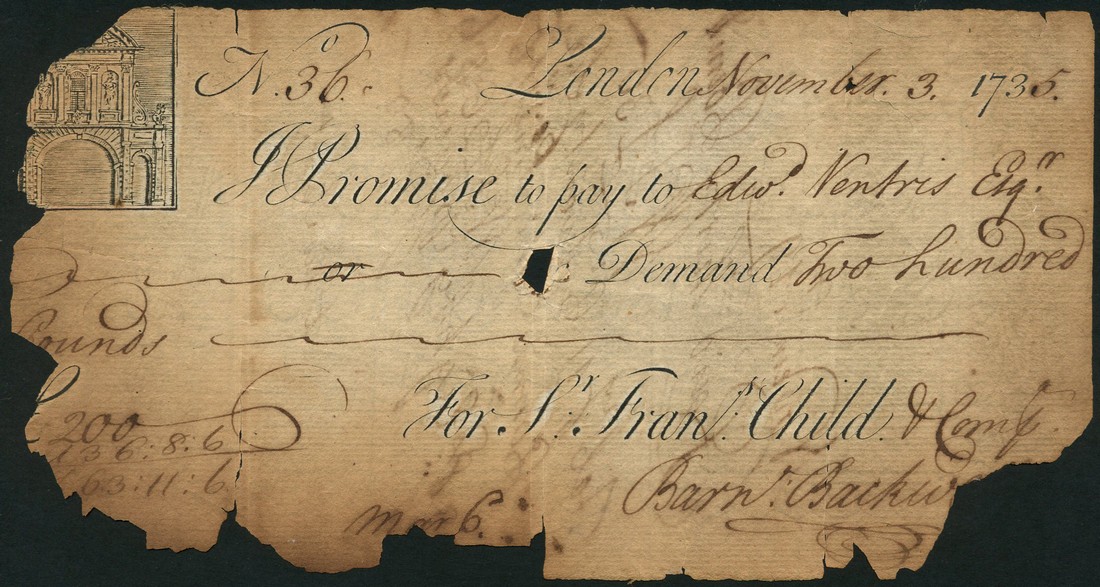 No. 36. London November. 3. 1735.
I Promise to pay to Edwd. Ventris Esqr.
or Demand Two hundred
Pounds
200
136:8:6
63:11:6
For Sr. Frans. Child & Compy.
Barnd. Backw
Mar 6.